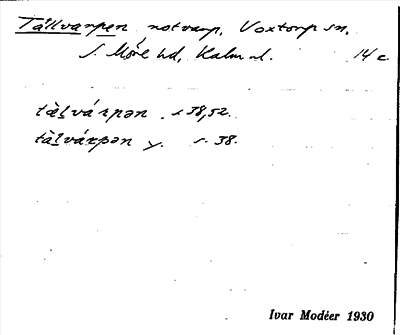 Tällvarpen notvarp, Voxtorp sn,
S. Möre hd, Kalm. l. 14 c
tæ̀lvárpən . s 38,52.
tàlvárpən y. s. 38.
Ivar Modéer 1930